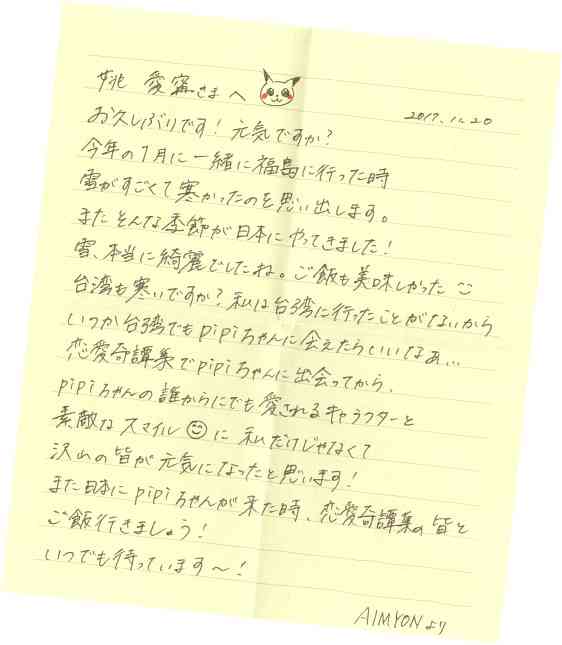 姚 愛寗さまへ
2017.12.20
お久しぶりです！元気ですか？
今年の1月に一緒に福島に行った時
雪がすごくて寒かったのを思い出します。
またそんな季節が日本にやってきました！
雪、本当に綺麗でしたね。ご飯も美味しかった
台湾も寒いですか？私は台湾に行ったことがないから
いつか台湾でもpipiちゃんに会えたらいいなぁ…
恋愛奇譚集でpipiちゃんに出会ってから、
pipiちゃんの誰からにでも愛されるキャラクターと
素敵なスマイル😊に私だけじゃなくて
沢山の皆が元気になったと思います！
また日本にpipiちゃんが来た時、恋愛奇譚集の皆と
ご飯行きましょう！
いつでも待っています〜！
AIMYONより